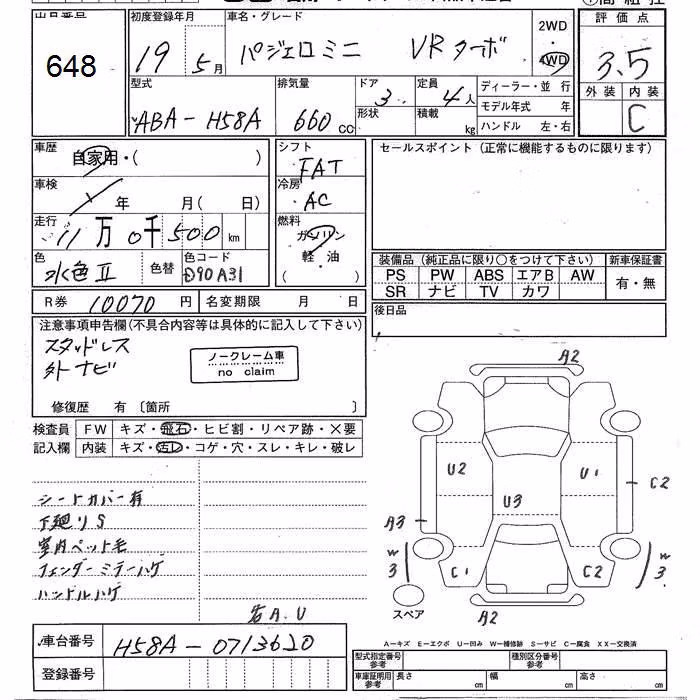 出品番号 初度登録年月 車名・グレード 2WD 評価点
648 19 5月 パジェロミニ VRターボ 4WD 3.5
型式 排気量 ドア 3 定員 4人 ディーラー・並行 外装 内装
ABA-H58A 660cc 形状 積載 kg モデル年式 年 C
ハンドル 左・右
車歴 自家用・( ) シフト FAT セールスポイント(正常に機能するものに限ります)
車検 年 月( 日) 冷房 AC
走行 11万0千500km 燃料 ガソリン
色 水色II 色替 色コード D90A31 軽・油 ( )
装備品(純正品に限り○をつけて下さい) 新車保証書
PS PW ABS エアB AW 有・無
SR ナビ TV カワ
R券 10070円 名変期限 月 日 後日品
注意事項申告欄(不具合内容等は具体的に記入して下さい)
スタッドレス
外ナビ
ノークレーム車
no claim
修復歴 有〔箇所 〕
検査員 FW キズ・飛石・ヒビ割・リペア跡・X要
記入欄 内装 キズ・汚レ・コゲ・穴・スレ・キレ・破レ
A2
U2 U1 C2
U3
A3
W3 C1 C2 W3
スペア A2
シートカバー有
下廻りS
室内ペット毛
フェンダーミラーハゲ
ハンドルハゲ
若A.U
車台番号 H58A-0713620
登録番号
A-キズ E-エクボ U-凹み W-補修跡 S-サビ C-腐食 XX-交換済
型式指定番号 参考 種別区分番号 参考
車庫証明用 参考 長さ cm 幅 cm 高さ cm